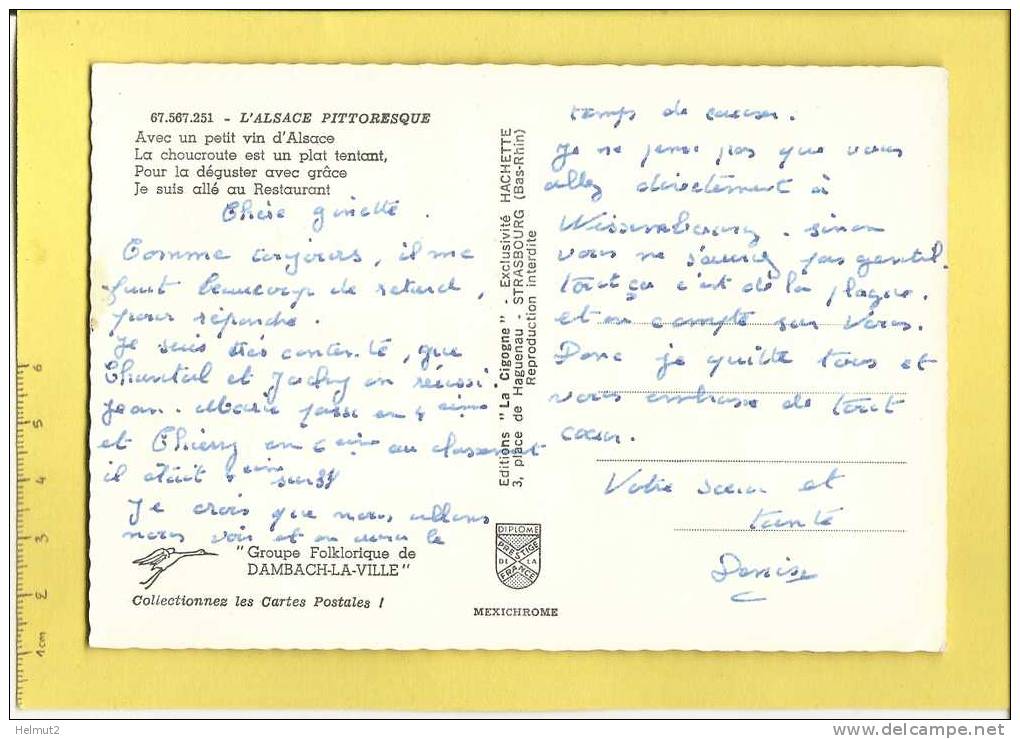 67.567.251 - L'ALSACE PITTORESQUE
Avec un petit vin d'Alsace
La choucroute est un plat tentant,
Pour la déguster avec grâce
Je suis allé au Restaurant
Chère ginette.
Comme toujours, il me
faut beaucoup de retard,
pour répondre.
Je suis très contente, que
Chantal et Jacky on réussi
Jean-Marie passe en 4 ième
et Thierry en 6 ième au classement
il était ième sur 34
Je crois que nous allons
nous voir et on aura le
"Groupe Folklorique de
DAMBACH-LA-VILLE"
Collectionnez les Cartes Postales !
Editions "La Cigogne" - Exclusivité HACHETTE
3, place de Haguenau - STRASBOURG (Bas-Rhin)
Reproduction interdite
DIPLOME
PRESTIGE
DE LA
FRANCE
MEXICHROME
temps de causer.
Je ne pense pas que vous
allez directement à
Wissembourg. sinon
vous ne seriez pas gentil.
tout ça c'est de la blague.
et on compte sur vous.
Donc je quitte tous et
vous embrasse de tout
cœur.
Votre sœur et
tante
Denise
1cm 2 3 4 5 6
Helmut2
www.delcampe.net